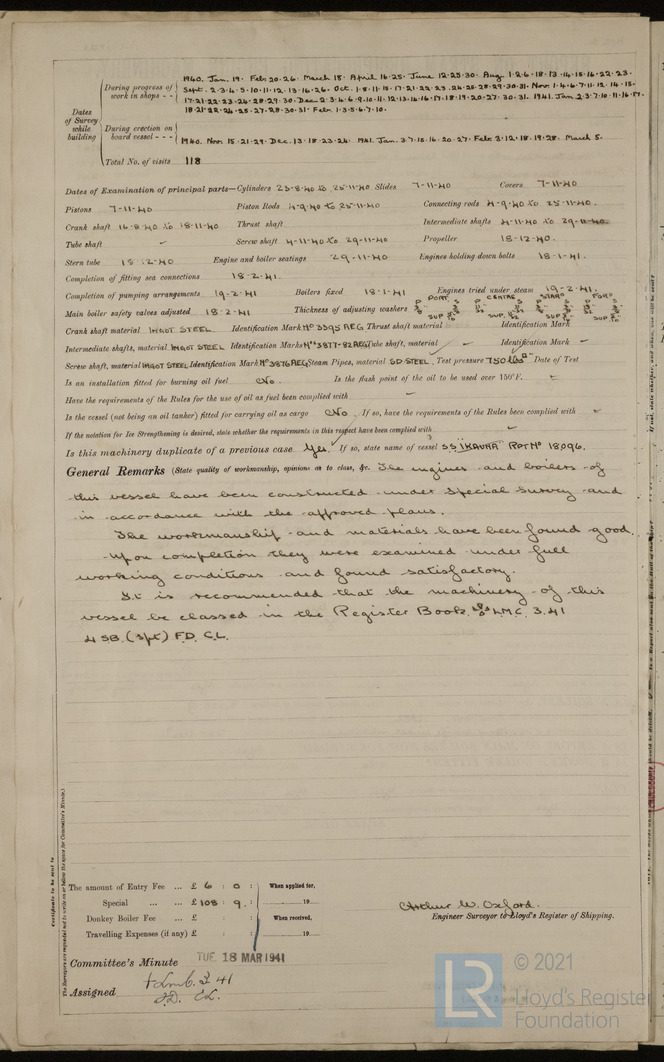 During progress of work in shops - - 1940. Jan. 19. Feb. 20. 26. March 18. April 16. 25. June 12. 25. 30. Aug. 1. 2. 6. 18. 13. 14. 15. 16. 22. 23.
Sept. 2. 3. 4. 5. 10. 11. 12. 13. 16. 26. Oct. 1. 8. 11. 15. 17. 21. 22. 23. 24. 25. 28. 29. 30. 31. Nov. 1. 4. 6. 7. 11. 12. 14. 15.
17. 21. 22. 23. 24. 28. 29. 30. Dec. 2. 3. 4. 6. 9. 10. 11. 12. 13. 14. 16. 17. 18. 19. 20. 27. 30. 31. 1941. Jan. 2. 3. 7. 10. 11. 16. 17.
18. 21. 22. 24. 25. 27. 28. 30. 31. Feb. 1. 3. 5. 6. 7. 10.
Dates of Survey while building
During erection on board vessel - - - 1940. Nov. 15. 21. 29. Dec. 13. 18. 23. 24. 1941. Jan. 3. 7. 15. 16. 20. 27. Feb. 3. 12. 18. 19. 28. March 5.
Total No. of visits 118
Dates of Examination of principal parts—Cylinders 23-8-40 to 25-11-40 Slides 7-11-40 Covers 7-11-40
Pistons 7-11-40 Piston Rods 4-9-40 to 25-11-40 Connecting rods 4-9-40 to 25-11-40.
Crank shaft 16-8-40 to 18-11-40 Thrust shaft Intermediate shafts 4-11-40 to 29-11-40
Tube shaft Screw shaft 4-11-40 to 29-11-40 Propeller 18-12-40.
Stern tube 13-12-40 Engine and boiler seatings 29-11-40 Engines holding down bolts 18-1-41.
Completion of fitting sea connections 18-2-41.
Completion of pumping arrangements 19-2-41 Boilers fixed 18-1-41 Engines tried under steam 19-2-41.
Main boiler safety valves adjusted 18-2-41 Thickness of adjusting washers PORT CENTRE STARD FORD
Crank shaft material INGOT STEEL Identification Mark No 3395 REG Thrust shaft material Identification Mark
Intermediate shafts, material INGOT STEEL Identification Marks Nos 3877-82 REG Tube shaft, material Identification Mark
Screw shaft, material INGOT STEEL Identification Mark No 3876 REG Steam Pipes, material SD STEEL. Test pressure 750 lbs □" Date of Test
Is an installation fitted for burning oil fuel No. Is the flash point of the oil to be used over 150°F.
Have the requirements of the Rules for the use of oil as fuel been complied with
Is the vessel (not being an oil tanker) fitted for carrying oil as cargo No. If so, have the requirements of the Rules been complied with
If the notation for Ice Strengthening is desired, state whether the requirements in this respect have been complied with
Is this machinery duplicate of a previous case Yes If so, state name of vessel SS "IKAUNA" Rpt No 18096.
General Remarks (State quality of workmanship, opinions as to class, &c. The engines and boilers of
this vessel have been constructed under Special Survey and
in accordance with the approved plans.
The workmanship and materials have been found good.
Upon completion they were examined under full
working conditions and found satisfactory.
It is recommended that the machinery of this
vessel be classed in the Register Book LMC. 3.41
4 SB. (Spt) F.D. C.L.
The amount of Entry Fee ... £ 6 : 0 : When applied for,
Special ... £ 108 : 9 : 19
Donkey Boiler Fee ... £ : : When received,
Travelling Expenses (if any) £ : : 19
Arthur W. Oxford.
Engineer Surveyor to Lloyd's Register of Shipping.
Committee's Minute TUE. 18 MAR 1941
Assigned + Lmc. 3 41
F.D. C.L.
Certificate to be sent to
(The Surveyors are requested not to write on or below the space for Committee's Minute.)
LR © 2021
Lloyd's Register
Foundation